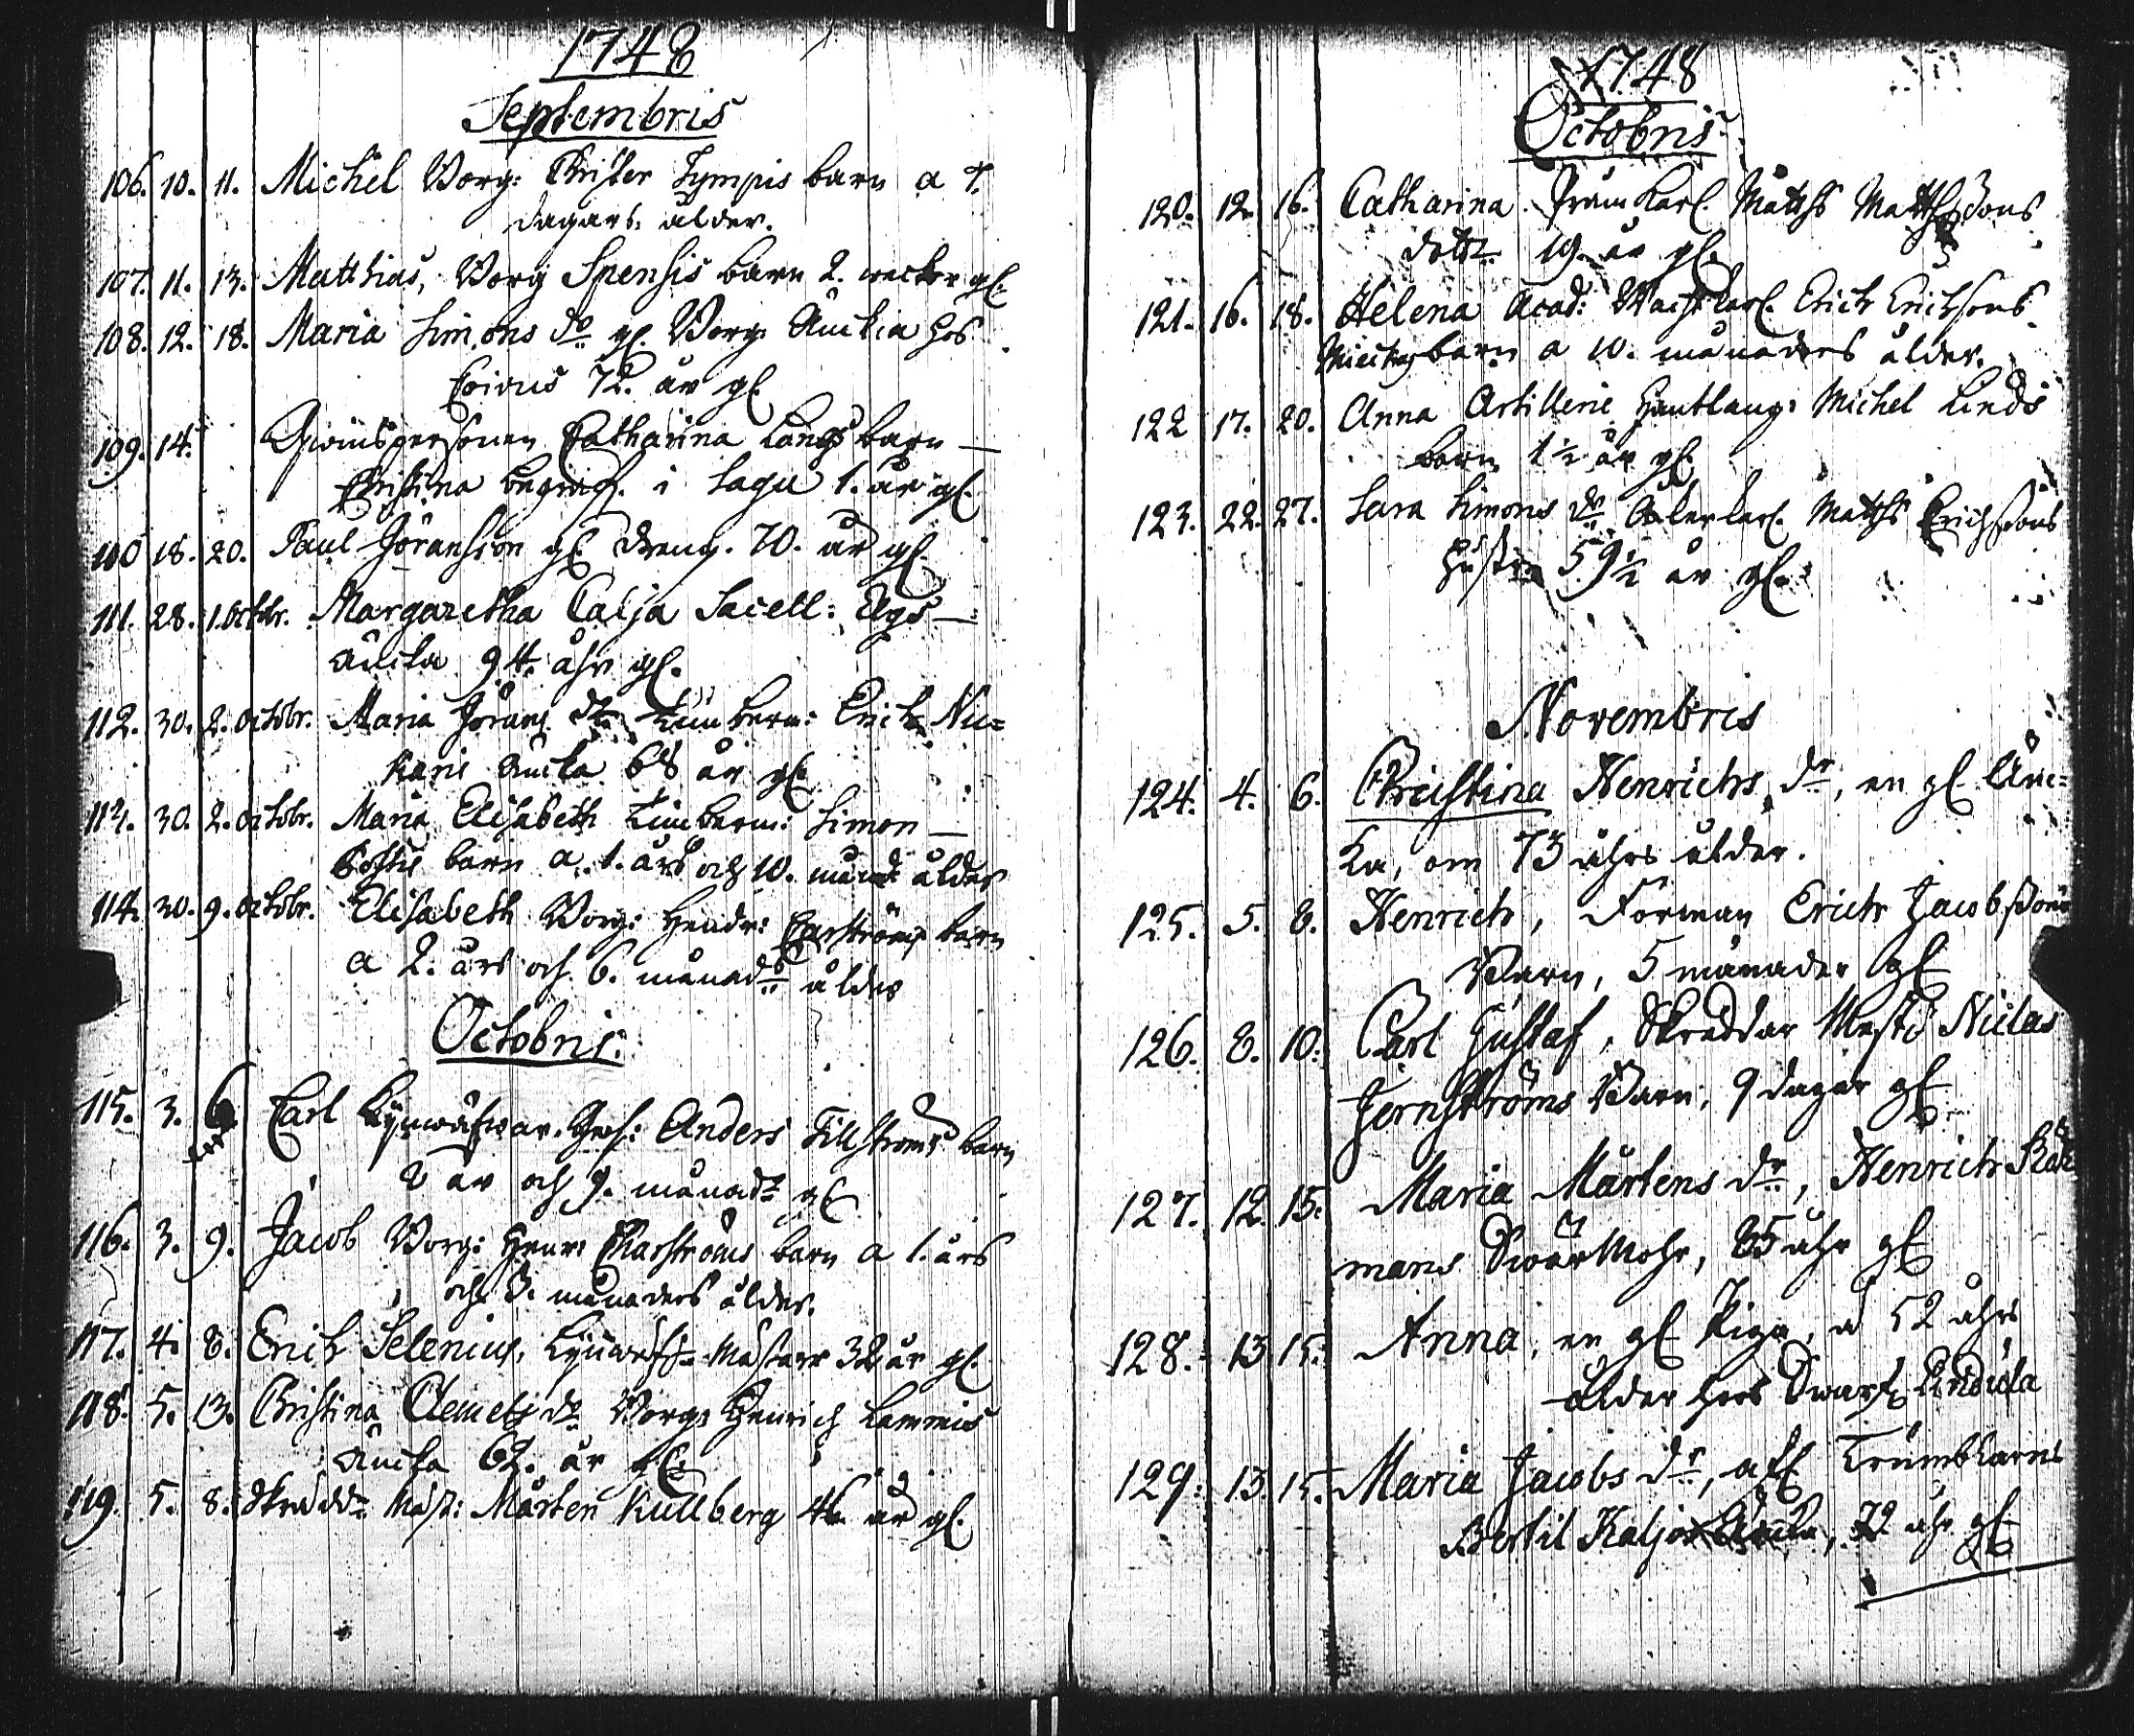 1748
Septembris
106. 10. 11. Michel Borg: Christer Tympis barn a 7.
dagars ålder.
107. 11. 13. Matthias, Borg Spensis barn 2. weckor gl.
108. 12. 18. Maria Simons dr gl. Borg: Änckia hos
72. år gl.
109. 14. Qwinspersonen Catharina Långs barn
Christina begrafs. i Sagu 1. år gl.
110 18. 20. Paul Jöransson gl. dreng. 70. år gl.
111. 28. 1. Octobr. Margaretha Calja Sacell: Ags
äncka 94. åhr gl.
112. 30. 2. Octobr. Maria Jörans dr Timberm: Erich Nu=
karis äncka 68 år gl.
113. 30. 2. Octobr. Maria Elisabeth Timberm: Simon
barn a. 1. års och 10. månad: ålder
114. 30. 9. Octobr. Elisabeth Borg: Hendr: Carströms barn
a 2. års och 6. månadrs ålder
Octobris.
115. 3. 6 Carl Anders Tillströms barn
2 år och 9. månadr gl
116. 3. 9. Jacob Borg: Henr: Charströms barn a 1. års
och 3. månaders ålder.
117. 4. 8. Erich Selenius, mästare 32 år gl.
118. 5. 13. Christina Clemets dr Borg: Henrich Lammis
äncka 62. år gl.
119. 5. 8. Skreddr Mäst: Mårten Kullberg 46. år gl.
1748
Octobris
120. 12. 16. Catharina Matths Matthssons
dotter 19. år gl.
121. 16. 18. Helena Acad: Wachtkarl. Erich Erichsons
barn a 10. månaders ålder.
122 17. 20. Anna Artillerie Handtlang: Michel Linds
barn 1 1/2 år gl
123. 22. 27. Sara Simons dr Åkerkarl. Matths Erichssons
hustru 59 1/2 år gl.
Novembris
124. 4. 6. Christina Henrichs dr, en gl Än=
ka, om 73 åhrs ålder.
125. 5. 8. Henrich, Förman Erich Jacobssons
Barn, 5 månader gl
126. 8. 10. Carl Gustaf, Skräddar Mest: Niclas
Jernströms Barn, 9 dagar gl
127. 12. 15. Maria Mårtens dr, Henrich
mans Swärmohr, 85 åhr gl
128. 13 15. Anna, en gl Piga, a 52 åhrs
ålder hos Swarf. Lindula
129. 13. 15. Maria Jacobs dr, afl Timbkarns
Bertil Kaljos Encka, 72 åhr gl